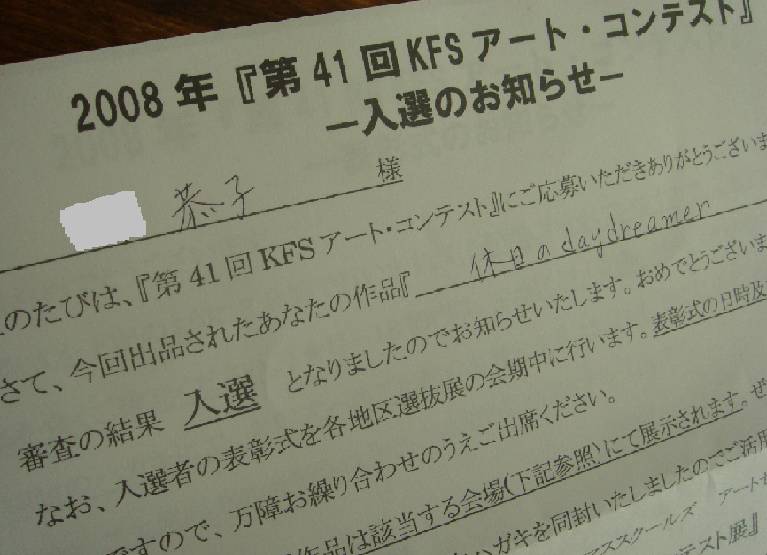 2008年『第41回KFSアート・コンテスト』
ー入選のお知らせー
恭子 様
のたびは、『第41回KFSアート・コンテスト』にご応募いただきありがとうございま
さて、今回出品されたあなたの作品『 休日のdaydreamer
審査の結果 入選 となりましたのでお知らせいたします。おめでとうございま
なお、入選者の表彰式を各地区選抜展の会期中に行います。表彰式の日時及
ですので、万障お繰り合わせのうえご出席ください。
作品は該当する会場(下記参照)にて展示されます。ぜ
ハガキを同封いたしましたのでご活用
スクールズ アート
テスト展』